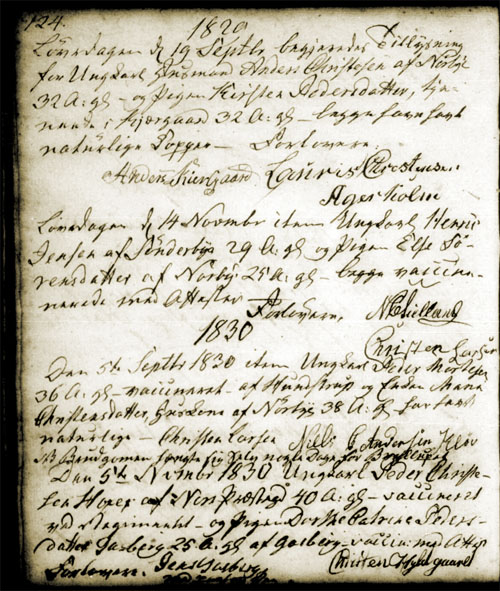 124.
1829
Löverdagen d 19 Septbr begjæredes Tillysning
for Ungkarl Huusmand Anders Christesen af Nörbye
32 A: gl - og Pigen Kirsten Pedersdatter, tje-
nende i Kjærgaard 32 A: gl - begge have havt
naturlige Kopper - Forlovere.
Anders Kiergaard Lauris Chrestensen
Agerholm
Löverdagen d 14 Novembr item Ungkarl Henric
Jensen af Sönderbye 29 A: gl og Pigen Else Sö-
rensdatter af Nörby 25 A: gl - begge vaccine-
nerede med Attester Forlovere,
1830
Christen Larsen
Den 5te Septbr 1830 item Ungkarl Peder Mortensen
36 A: gl - vaccineret - af Hundstrup og Enken Maria
Christensdatter, af Nörbye 38 A: gl har havt
naturlige - Christen Larsen Niels C Andersen
NB Brudgommen for Brylluppet
Den 5te Novmbr 1830 Ungkarl Peder Christe-
sen af 40 A: gl - vaccineret
ved Regimentet - og Pigen Dorthe Catrine Peders-
datter Gasberg 25 A: gl af Gasberg - vaccin: med Attest
Forlovere. Jens Gasberg Christen Hyldgaard